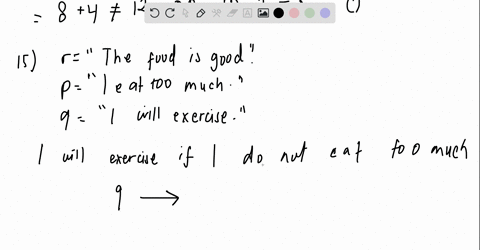 = 8 + 4 ≠ 12
C)
15) r = "The food is good".
p = "I eat too much."
q = "I will exercise."
I will exercise if I do not eat too much
q ⟶